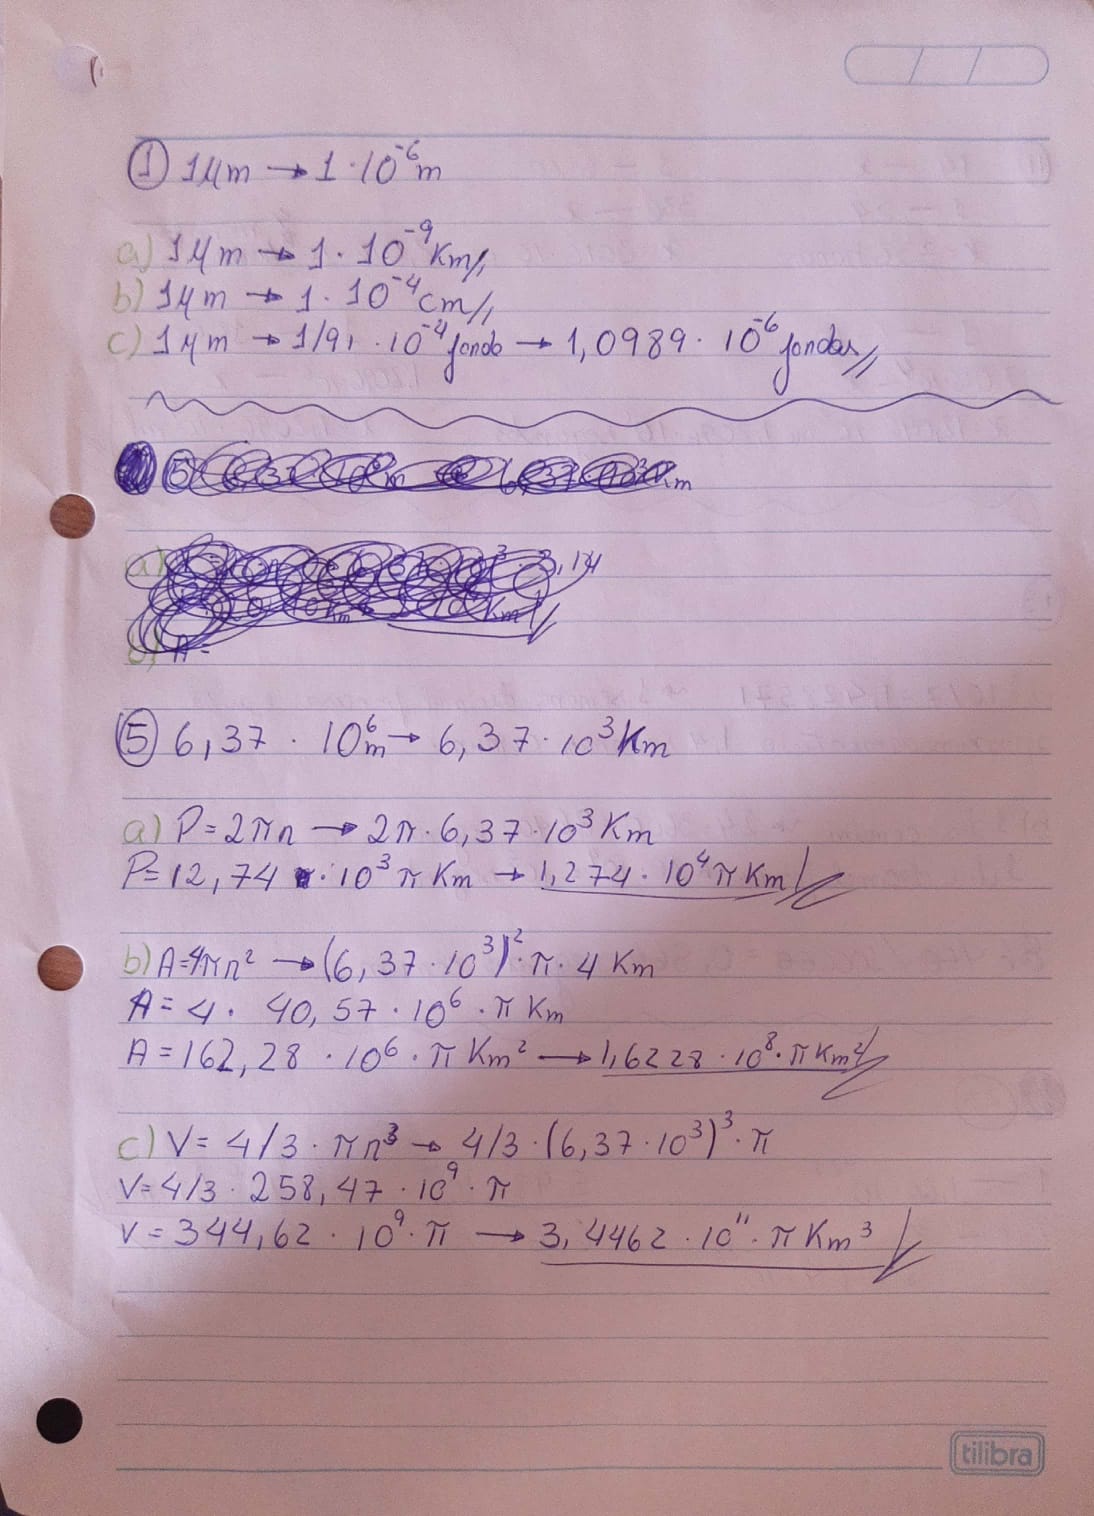 ① 1μm → 1·10⁻⁶m
a) 1μm → 1·10⁻⁹Km//
b) 1μm → 1·10⁻⁴cm//
c) 1μm → 1/91·10⁻⁴ jarda → 1,0989·10⁻⁶ jardas//
⑤ 6,37·10⁶m → 6,37·10³Km
a) P=2πr → 2π·6,37·10³Km
P=12,74·10³πKm → 1,274·10⁴πKm//
b) A=4πr² → (6,37·10³)²·π·4Km
A=4·40,57·10⁶·πKm
A=162,28·10⁶·πKm² → 1,6228·10⁸·πKm²//
c) V=4/3·πr³ → 4/3·(6,37·10³)³·π
V=4/3·258,47·10⁹·π
V=344,62·10⁹·π → 3,4462·10¹¹·πKm³//
tilibra